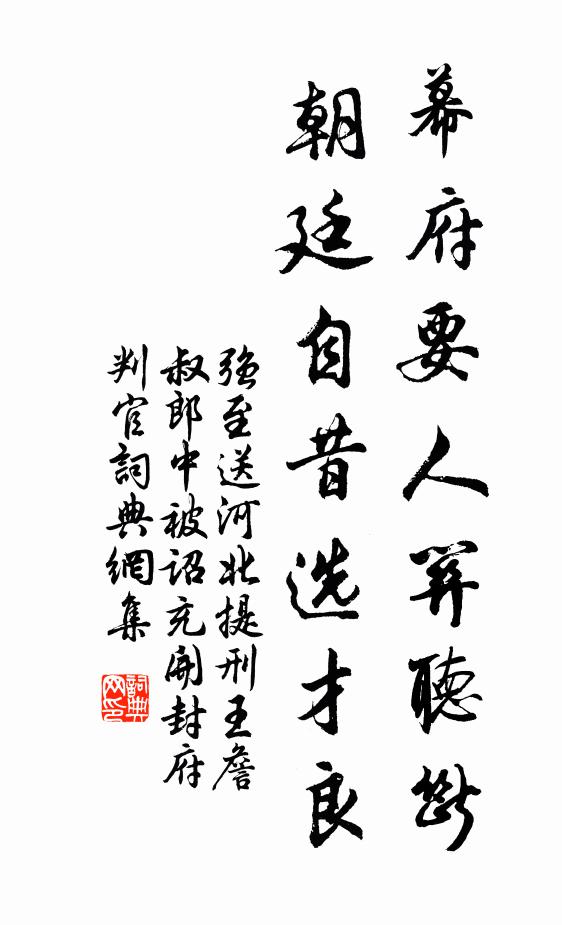 幕府要人關聽斷
朝廷自昔选才良
强至送河北提刑王詹
叔郎中被詔充開封府
判官詞典網集
詞典网印